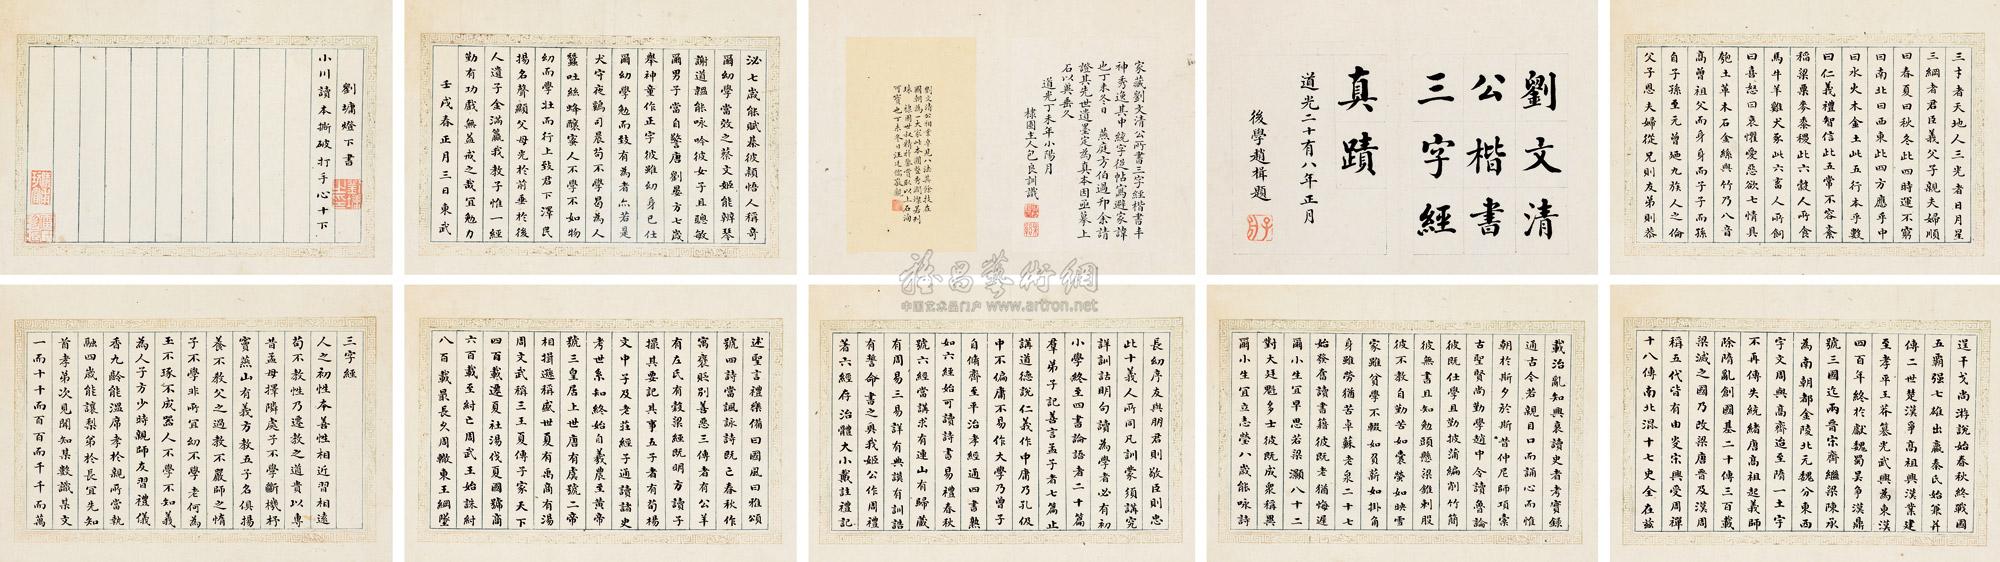 劉文清
公楷書
三字經
真蹟
道光二十有八年正月
後學趙楫題
三字經
人之初性本善性相近習相遠
苟不教性乃遷教之道貴以專
昔孟母擇隣處子不學斷機杼
竇燕山有義方教五子名俱揚
養不教父之過教不嚴師之惰
子不學非所宜幼不學老何為
玉不琢不成器人不學不知義
為人子方少時親師友習禮儀
香九齡能溫席孝於親所當執
融四歲能讓梨弟於長宜先知
首孝弟次見聞知某數識某文
一而十十而百百而千千而萬
三才者天地人三光者日月星
三綱者君臣義父子親夫婦順
曰春夏曰秋冬此四時運不窮
曰南北曰西東此四方應乎中
曰水火木金土此五行本乎數
曰仁義禮智信此五常不容紊
稻粱菽麥黍稷此六穀人所食
馬牛羊雞犬豕此六畜人所飼
曰喜怒曰哀懼愛惡欲七情具
匏土革木石金絲與竹乃八音
高曾祖父而身身而子子而孫
自子孫至元曾廼九族人之倫
父子恩夫婦從兄則友弟則恭
長幼序友與朋君則敬臣則忠
此十義人所同凡訓蒙須講究
詳訓詁明句讀為學者必有初
小學終至四書論語者二十篇
羣弟子記善言孟子者七篇止
講道德說仁義作中庸乃孔伋
中不偏庸不易作大學乃曾子
自脩齊至平治孝經通四書熟
如六經始可讀詩書易禮春秋
號六經當講求有連山有歸藏
有周易三易詳有典謨有訓誥
有誓命書之奧我姬公作周禮
著六經存治體大小戴註禮記
述聖言禮樂備曰國風曰雅頌
號四詩當諷詠詩既亡春秋作
寓褒貶別善惡三傳者有公羊
有左氏有穀梁經既明方讀子
撮其要記其事五子者有荀楊
文中子及老莊經子通讀諸史
考世系知終始自羲農至黃帝
號三皇居上世唐有虞號二帝
相揖遜稱盛世夏有禹商有湯
周文武稱三王夏傳子家天下
四百載遷夏社湯伐夏國號商
六百載至紂亡周武王始誅紂
八百載最長久周轍東王綱墜
逞干戈尚游說始春秋終戰國
五霸强七雄出嬴秦氏始兼并
傳二世楚漢爭高祖興漢業建
至孝平王莽篡光武興為東漢
四百年終於獻魏蜀吳爭漢鼎
號三國迄兩晉宋齊繼梁陳承
為南朝都金陵北元魏分東西
宇文周與高齊迨至隋一土宇
不再傳失統緒唐高祖起義師
除隋亂創國基二十傳三百載
梁滅之國乃改梁唐晉及漢周
稱五代皆有由炎宋興受周禪
十八傳南北混十七史全在茲
載治亂知興衰讀史者考實錄
通古今若親目口而誦心而惟
朝於斯夕於斯昔仲尼師項橐
古聖賢尚勤學趙中令讀魯論
彼既仕學且勤披蒲編削竹簡
彼無書且知勉頭懸梁錐刺股
彼不教自勤苦如囊螢如映雪
家雖貧學不輟如負薪如掛角
身雖勞猶苦卓蘇老泉二十七
始發奮讀書籍彼既老猶悔遲
爾小生宜早思若梁灝八十二
對大廷魁多士彼既成衆稱異
爾小生宜立志瑩八歲能咏詩
泌七歲能賦碁彼穎悟人稱奇
爾幼學當效之蔡文姬能辨琴
謝道韞能咏吟彼女子且聰敏
爾男子當自警唐劉晏方七歲
舉神童作正字彼雖幼身已仕
爾幼學勉而致有為者亦若是
犬守夜鷄司晨苟不學曷為人
蠶吐絲蜂釀蜜人不學不如物
幼而學壯而行上致君下澤民
揚名聲顯父母光於前垂於後
人遺子金滿籯我教子惟一經
勤有功戲無益戒之哉宜勉力
壬戌春正月三日東武
劉墉燈下書
小川讀本撕破打手心十下
家藏劉文清公所書三字經楷書丰
神秀逸其中統字從帖寫避家諱
也丁未冬日燕庭方伯過邗余請
證其先世遺墨定為真本因亟摹上
石以與垂久
道光丁未年小陽月
棣園主人包良訓識
劉文清公相業卓見八法其餘技在
國朝為一大家此本圓整秀潤
珠棣園世叔精於鑒賞取以上石洵
可寶也丁未冬日汪廷儒敬觀
雅昌藝術網
中国艺术品门户 www.artron.net